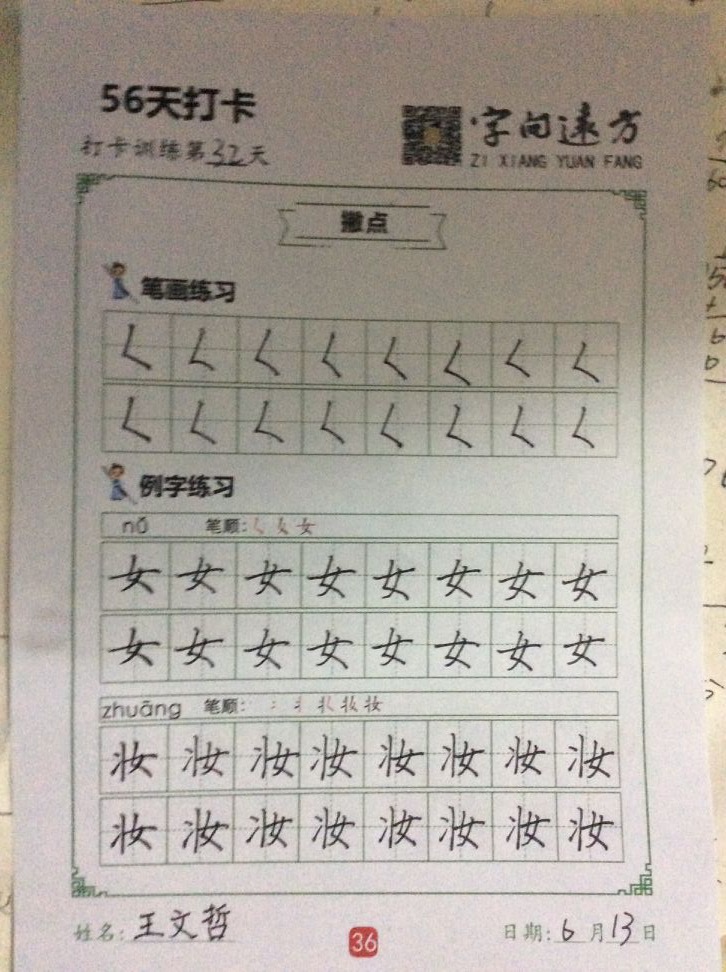 56天打卡
字向远方
打卡训练第32天
ZI XIANG YUAN FANG
撇点
笔画练习
𡿨 𡿨 𡿨 𡿨 𡿨 𡿨 𡿨 𡿨
𡿨 𡿨 𡿨 𡿨 𡿨 𡿨 𡿨 𡿨
例字练习
nǚ 笔顺: 𡿨 女 女
女 女 女 女 女 女 女 女
女 女 女 女 女 女 女 女
zhuāng 笔顺:
妆 妆 妆 妆 妆 妆 妆 妆
妆 妆 妆 妆 妆 妆 妆 妆
姓名: 王文哲 36 日期: 6月13日